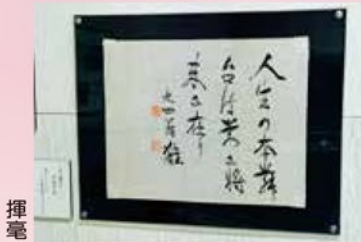 人生の本舞
台は常に将
来に在り
揮毫